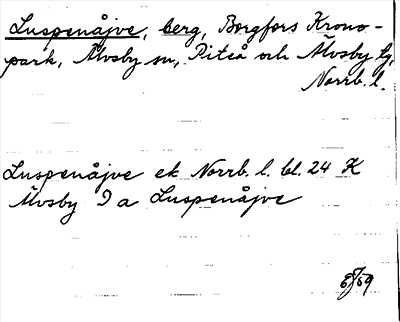 Luspenåjve, berg, Borgfors Krono-
park, Älvsby sn, Piteå och Älvsby tg,
Norrb. l.
Luspenåjve ek. Norrb. l. bl. 24 K
Älvsby 9 a Luspenåjve